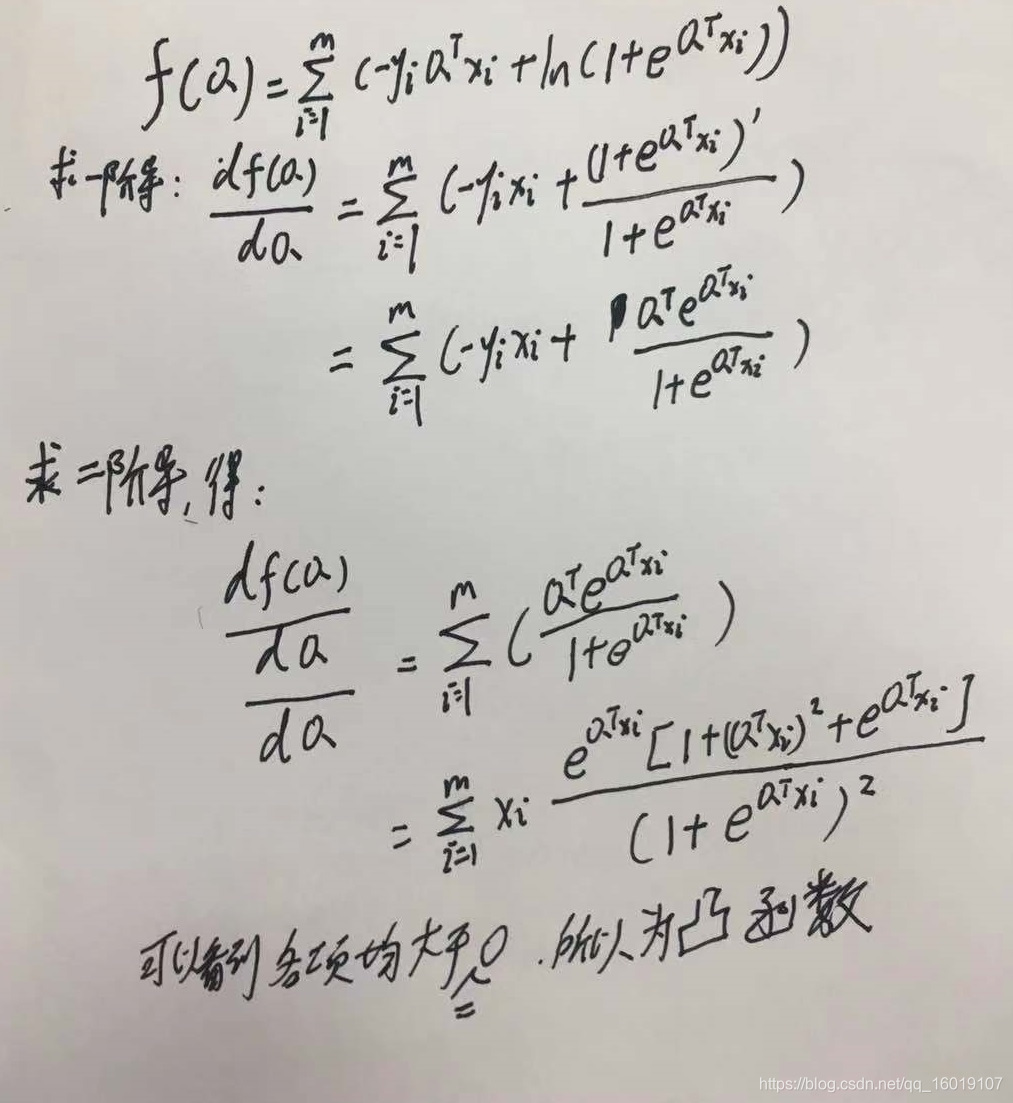 f(a) = \sum_{i=1}^{m} (-y_i a^T x_i + ln(1+e^{a^T x_i}))
求一阶导: \frac{df(a)}{da} = \sum_{i=1}^{m} (-y_i x_i + \frac{(1+e^{a^T x_i})'}{1+e^{a^T x_i}})
= \sum_{i=1}^{m} (-y_i x_i + \frac{a^T e^{a^T x_i}}{1+e^{a^T x_i}})
求二阶导,得:
\frac{\frac{df(a)}{da}}{da} = \sum_{i=1}^{m} (\frac{a^T e^{a^T x_i}}{1+e^{a^T x_i}})
= \sum_{i=1}^{m} x_i \frac{e^{a^T x_i}[1+(a^T x_i)^2+e^{a^T x_i}]}{(1+e^{a^T x_i})^2}
可以看到各项均大于0.所以为凸函数
=
https://blog.csdn.net/qq_16019107